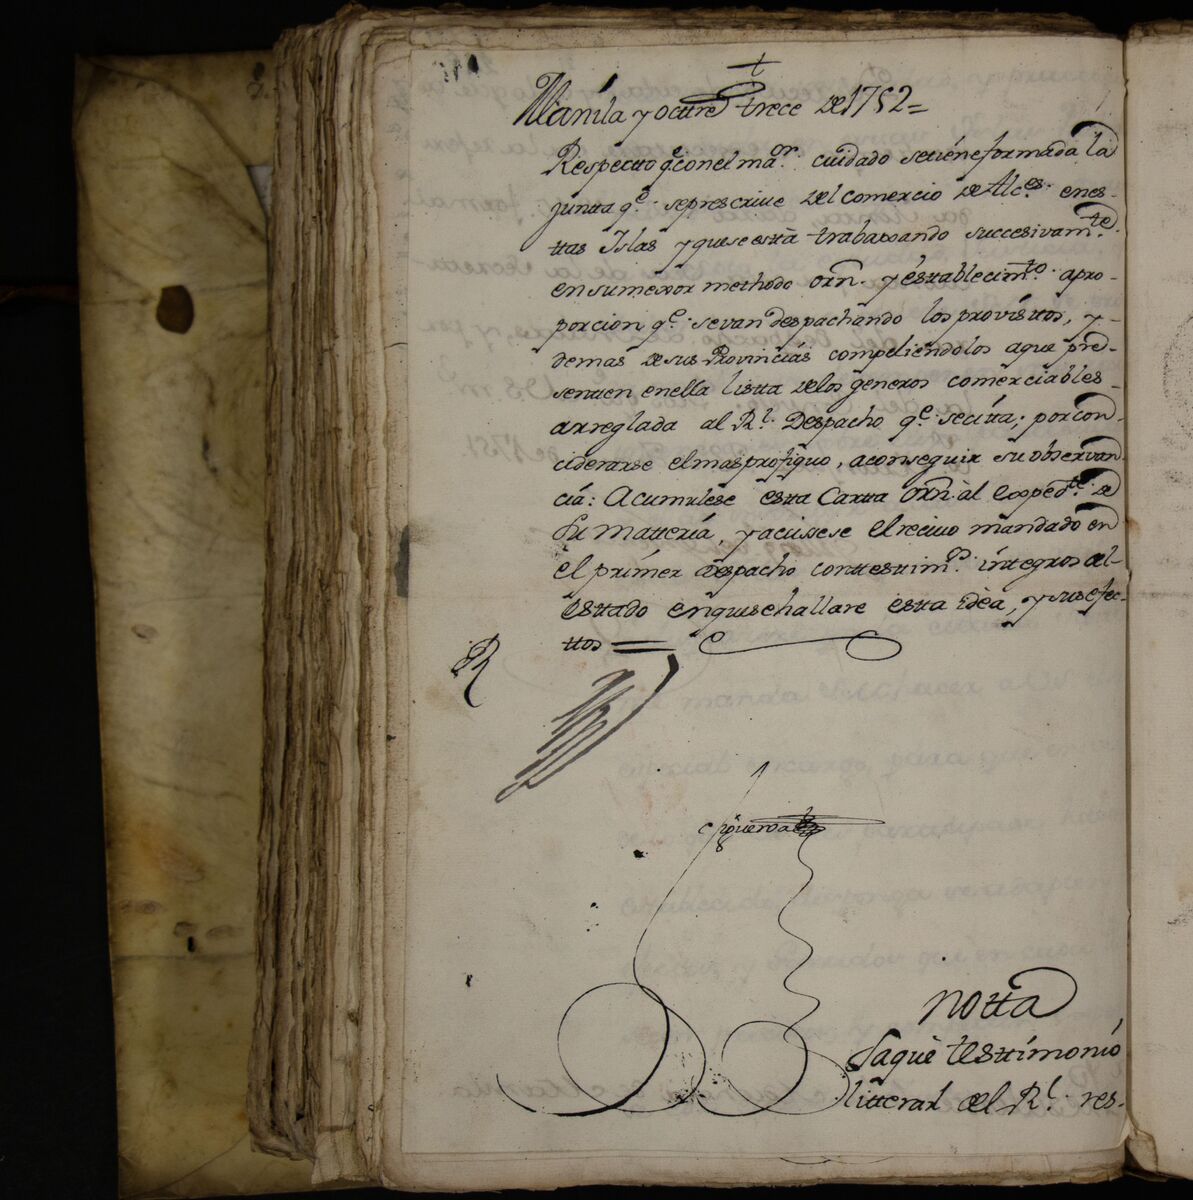 Manila y octtre trece de 1752=
Respectto q.e con el ma.or cuidado se tiene formada la
juntta q.e se prescrive del comercio de Alc.es en es-
ttas Islas y que se esttà trabaxando succesivam.te
en su mexor methodo orn. y esttablecim.to apro-
porcion q.e se van despachando los provisttos, y-
demas de sus Provincias compeliendolos a que pre-
sentten en ella listta de los generos comerciables-
arreglada al R.l Despacho q.e se citta; por con-
ciderarse el mas profiquo, a conseguir su observan
cia: Acumulese estta Cartta orn. àl Exped.te de
su Matteria, y acussese el recivo mandado en
el primer despacho con ttesttim.os integros del-
esttado en que se hallare estta idèa, y sus efec-
ttos
R
Figueroa
Notta
Saquè testtimonio
litteral del R.l res-